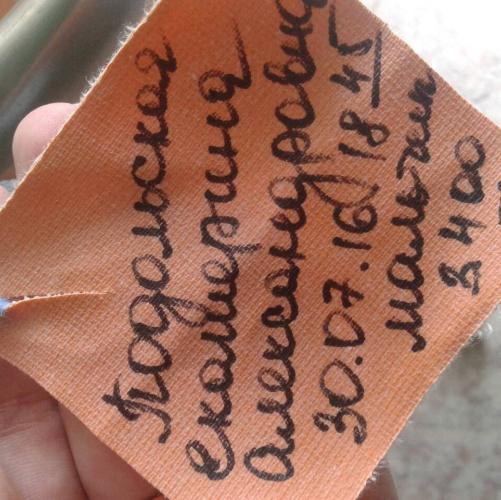 Подольская
Екатерина
Александровна
30.07.16 18 45
мальчик
3400